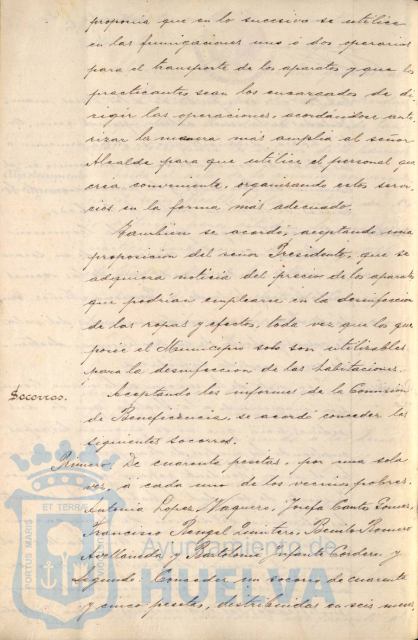 proponia que en lo sucesivo se utilice
en las fumigaciones uno ó dos operarios
para el transporte de los aparatos y que los
practicantes sean los encargados de di
rigir las operaciones, acordándose auto
rizar la manera más amplia al señor
Alcalde para que utilice el personal que
crea conveniente, organizando estos servi
cios en la forma más adecuada.
También se acordó, aceptando una
proposicion del señor Presidente, que se
adquiera noticia del precio de los aparatos
que podrían emplearse en la desinfeccion
de las ropas y efectos, toda vez que los que
posee el Municipio solo son utilizables
para la desinfeccion de las habitaciones.
Socorros.
Aceptando los informes de la Comision
de Beneficencia, se acordó conceder los
siguientes socorros.
Primero. De cuarenta pesetas, por una sola
vez, á cada uno de los vecinos pobres
Antonia Lopez Vaquero, Josefa Cante Gomez,
Francisco Rangel Quintero, Benito Romero
Avellano y Cordero y
Segundo. Conceder un socorro de cuarenta
y cinco pesetas, distribuidas en seis meses
PORTUS MARIS ET TERRAE
Ayuntamiento de
HUELVA